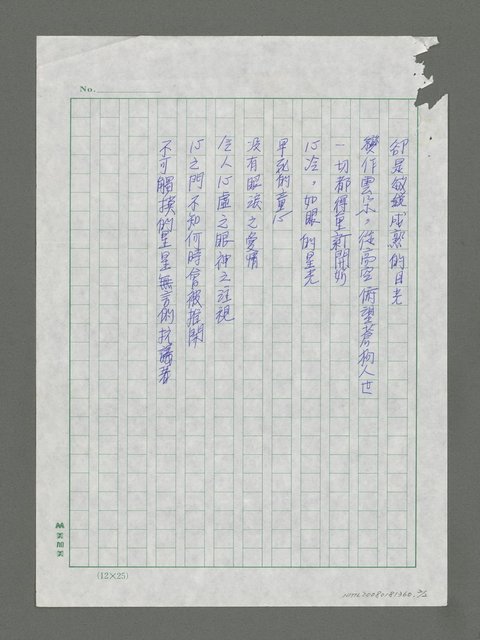 No.
卻是敏銳成熟的目光
變作雲朵，從高空俯望蒼狗人世
一切都得重新開始
心冷，如眼的星光
早死的童心
沒有眼淚之愛情
令人心虛之眼神之注視
心之門不知何時會被推開
不可觸摸的星星無言的抗議著
美加美
(12×25)
NMTL20080181360